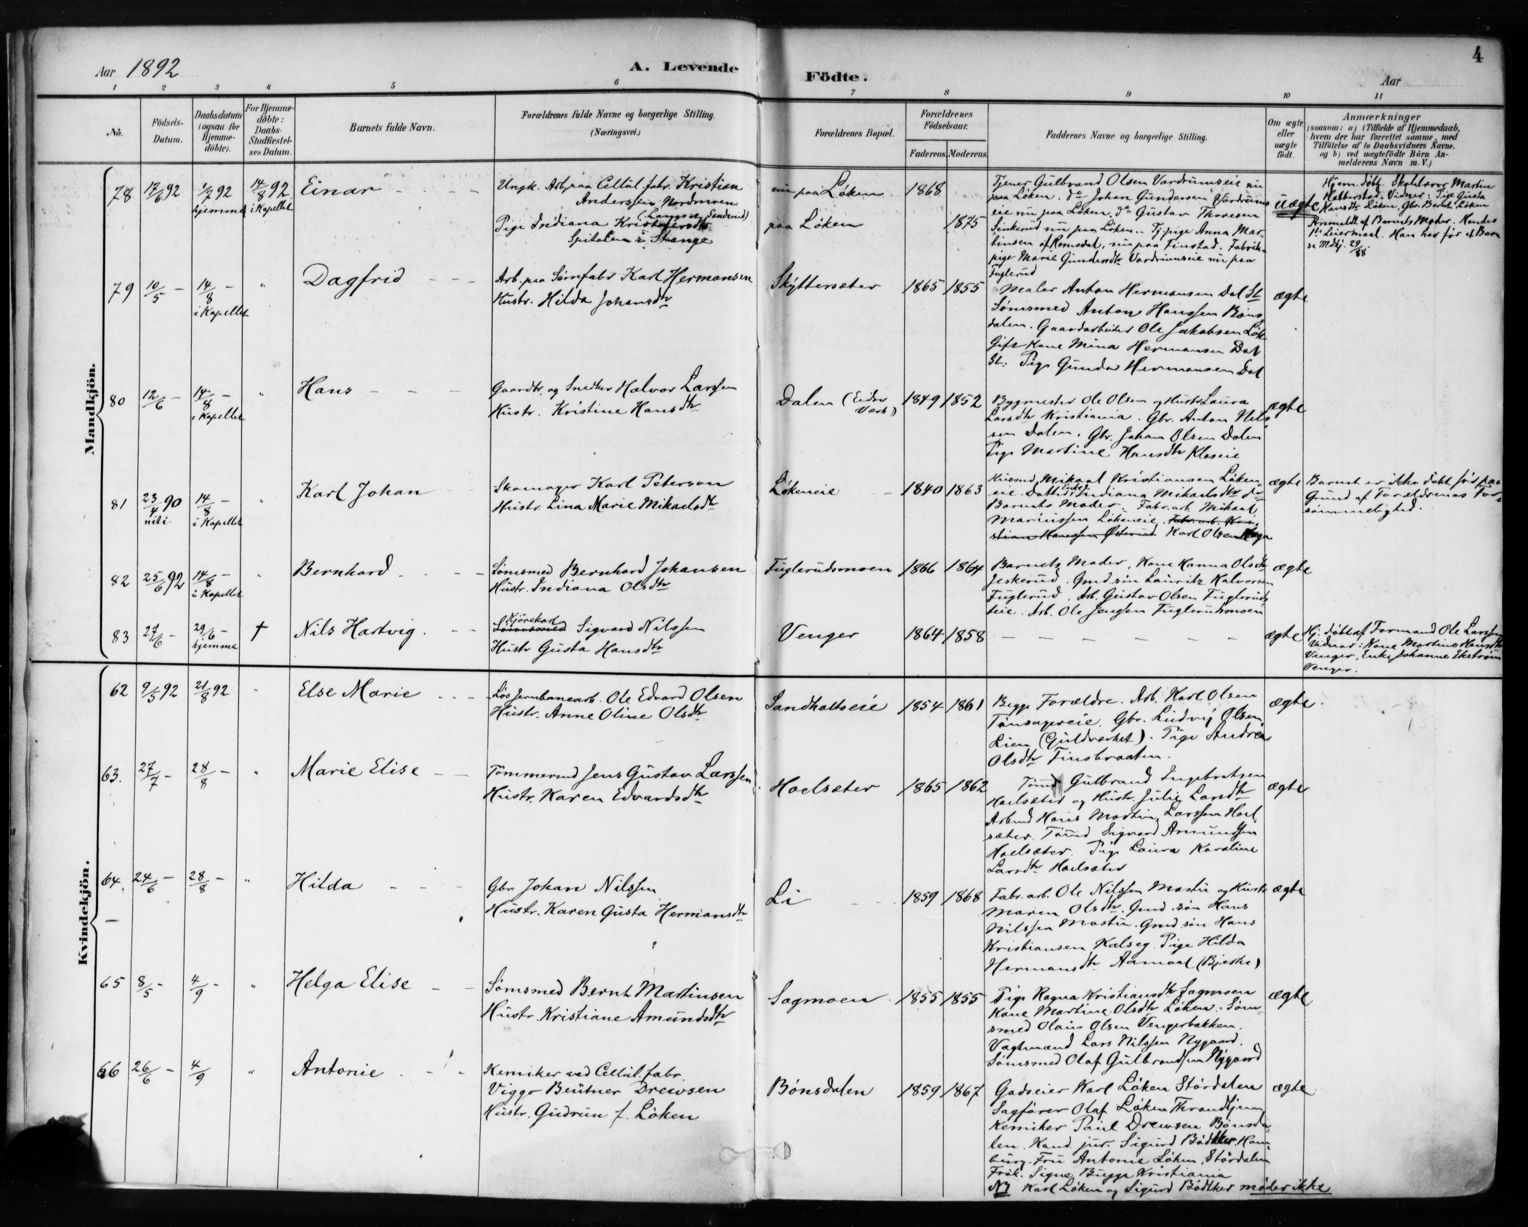 Aar 1892
A. Levende Fødte.
Aar
4
1 2 3 4 5 6 7 8 9 10 11
No.
Fødsels-Datum.
Daabsdatum (ogsaa for Hjemmedøbte).
For Hjemmedøbte: Daabs-Stadfæstelses Datum.
Barnets fulde Navn.
Forældrenes fulde Navne og borgerlige Stilling. (Næringsvei.)
Forældrenes Bopæl.
Forældrenes Fødselsaar.
Faderens. Moderens.
Faddernes Navne og borgerlige Stilling.
Om ægte eller uægte født.
Anmærkninger
Mandkjøn.
78 17/6 92 1/7 92 hjemme 14/8 92 i Kapellet Einar
Ungk. Arb. paa Cellul. fabr. Kristian
Anderssen Nordmoen
Pige Indiana Kristofersdtr
Spitalen i Stange
nu paa Løken
paa Løken
1868 1875
Tjener Gulbrand Olsen Vardrumseie nu
paa Løken. do Johan Gundersen Vardrums
eie nu paa Løken. do Gustav Thoresen
Sinkerud nu paa Løken. Tj. pige Anna Mar-
tinsen af Romsdal, nu paa Finstad. Fabrik-
pige Marie Gundersdtr Vardrumseie nu paa
Fuglerud
uægte
79 10/5 – 14/8 – i Kapellet " Dagfrid
Arb. paa Sømfabr Karl Hermansen
Hustr. Hilda Johansdtr
Skyttersæter
1865 1855
Maler Anton Hermansen Dal St.
Sømsmed Anton Hanssen Bøns
dalen. Gaardarbeider Ole Jakobsen Løk
Gift Kone Mina Hermansen Dal
St. Pige Gunda Hermansen Dal
ægte
80 12/6 – 14/8 – i Kapellet " Hans
Gaardbr. og Snedker Halvor Larssen
Hustr. Kristine Hansdtr
Dalen (Eidsv Værk)
1849 1852
Bygmester Ole Olsen og Hustr Laura
Larsdtr Kristiania. Gbr. Anton Nils
sen Dalen. Gbr. Johan Olsen Dalen
Pige Martine Hansdtr
ægte
81 23/4 90 14/8 – i Kapellet " Karl Johan
Skomager Karl Peterson
Hustr. Lina Marie Mikaelsdtr
Løkeneie
1840 1863
Husmd Mikael Kristiansen Løken
eie. Datter Indiana Mikaelsdtr do
Barnets Moder. Fabr. arb. Mikael
Mariussen Løkeneie. Karl Olsen
ægte
Barnet er ikke døbt før paa
Grund af Forældrenes For-
sømmelighed.
82 25/6 92 14/8 – i Kapellet " Bernhard
Sømsmed Bernhard Johansen
Hustr. Indiana Olsdtr
Fuglerudsmoen
1866 1864
Barnets Moder, Kone Hanna Olsdtr
Jeskerud. Grmd søn Lauritz Halvorsen
Fuglerud. Arb. Gustav Olsen Fugleruds
eie. Arb. Ole Jensen Fuglerudsmoen
ægte
83 27/6 – 29/6 – hjemme † Nils Hartvig.
Kjørekarl
Sømsmed Sigvard Nilssen
Hustr Gusta Hansdtr
Venger
1864 1858
ægte
Hj. døbt af Formand Ole Larssen
Vidner: Kone Martine Hansdtr
Venger, Enke Johanne Ekstrøm
Venger.
Kvindekjøn.
62 9/5 92 21/8 92 " Else Marie
Løs Jernbanearb. Ole Edvard Olsen
Hustr. Anne Oline Olsdtr
Sandholtseie
1854 1861
Begge Forældre. Arb. Karl Olsen
Tønsageneie. Gbr. Ludvig Olsen
Lien (Guldverket). Pige Andrea
Olsdtr Finsbraaten.
ægte
63. 27/7 – 28/8 – " Marie Elise
Tømmermd Jens Gustav Larssen
Hustr. Karen Edvardsdtr
Hoelsæter
1865 1862
Tømd Gulbrand Ingebretsen
Hoelsæter og Hustr. Julie Larsdtr
Arbmd Hans Martin Larssen Hoel
sæter. Tømd Sigvard Amundsen
Hoelsæter. Pige Laura Karoline
Larsdtr Hoelsæter
ægte
64. 24/6 – 28/8 – " Hilda
Gbr Johan Nilssen
Hustr. Karen Gusta Hermansdtr
Li
1859 1868
Fabr. arb. Ole Nilssen Mostu og Hustr
Maren Olsdtr. Grmd. søn Hans
Nilssen Mostu. Grmd søn Hans
Kristiansen Kalseg. Pige Hilda
Hermansdtr Aamaal (Bjerke)
ægte
65 8/5 – 4/9 " Helga Elise
Sømsmed Bernt Martinsen
Hustr. Kristiane Amundsdtr
Sagmoen
1855 1855
Pige Ragna Kristiansdtr Sagmoen
Kone Martine Olsdtr Løken. Søm-
smed Olaus Olsen Vengerbakken.
Vagtmand Lars Nilssen Nygaard.
Sømsmed Olaf Gulbrandsen Nygaard
ægte
66 26/6 – 4/9 " Antonie
Kemiker ved Cellul. fabr.
Viggo Beutner Drewsen
Hustr. Gudrun f. Løken
Bønsdalen
1859 1867
Godseier Karl Løken Størdalen
Sagfører Olaf Løken Throndhjem
Kemiker Paul Drewsen Bønsda-
len. Kand. jur. Sigurd Bødtker Ham
burg. Fru Antonie Løken, Størdalen
Frøk. Signe Bugge Kristiania
NB Karl Løken og Sigurd Bødtker møder ikke
ægte